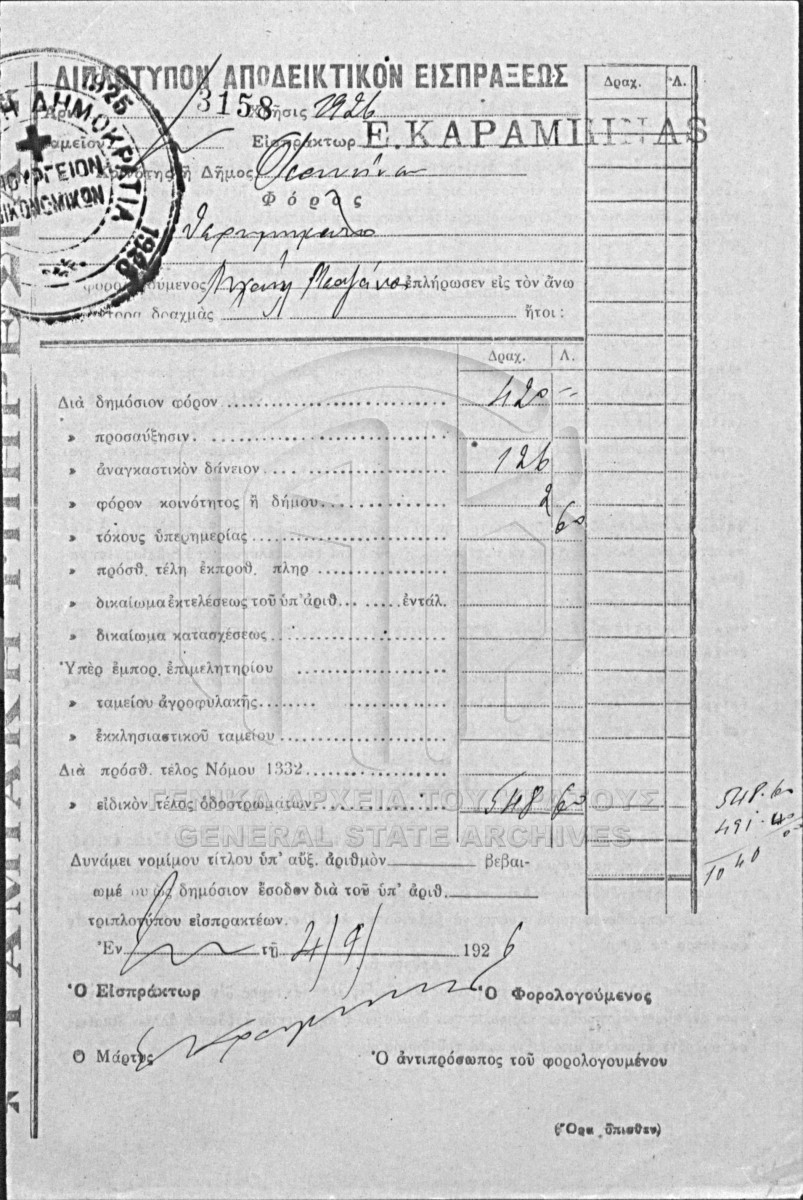 ΔΙΠΛΟΤΥΠΟΝ ΑΠΟΔΕΙΚΤΙΚΟΝ ΕΙΣΠΡΑΞΕΩΣ
3158 1926
Ταμείου Εἰσπράκτωρ Ε. ΚΑΡΑΜΠΙΝΑΣ
Κοινότης ἢ Δῆμος
Φόρος
φορολογούμενος Μιχαήλ ἐπλήρωσεν εἰς τὸν ἄνω
δραχμὰς ἤτοι:
Δραχ. Λ.
Δραχ. Λ.
Διὰ δημόσιον φόρον 420 —
» προσαύξησιν.
» ἀναγκαστικὸν δάνειον 126
» φόρον κοινότητος ἢ δήμου 2 60
» τόκους ὑπερημερίας
» πρόσθ. τέλη ἐκπροθ. πληρ
» δικαίωμα ἐκτελέσεως τοῦ ὑπ' ἀριθ. ἐντάλ.
» δικαίωμα κατασχέσεως
Ὑπὲρ ἐμπορ. ἐπιμελητηρίου
» ταμείου ἀγροφυλακῆς
» ἐκκλησιαστικοῦ ταμείου
Διὰ πρόσθ. τέλος Νόμου 1332
» εἰδικὸν τέλος ὁδοστρωμάτων 548 60
548.60
491.40
1040
ΓΕΝΙΚΑ ΑΡΧΕΙΑ ΤΟΥ ΚΡΑΤΟΥΣ
GENERAL STATE ARCHIVES
Δυνάμει νομίμου τίτλου ὑπ' αὔξ. ἀριθμὸν βεβαι-
δημόσιον ἔσοδον διὰ τοῦ ὑπ' ἀριθ.
τριπλοτύπου εἰσπρακτέων.
Ἐν τῇ 4/9/ 1926
Ὁ Εἰσπράκτωρ Ὁ Φορολογούμενος
Ὁ Μάρτυς Ὁ ἀντιπρόσωπος τοῦ φορολογουμένου
(Ὅρα ὄπισθεν)